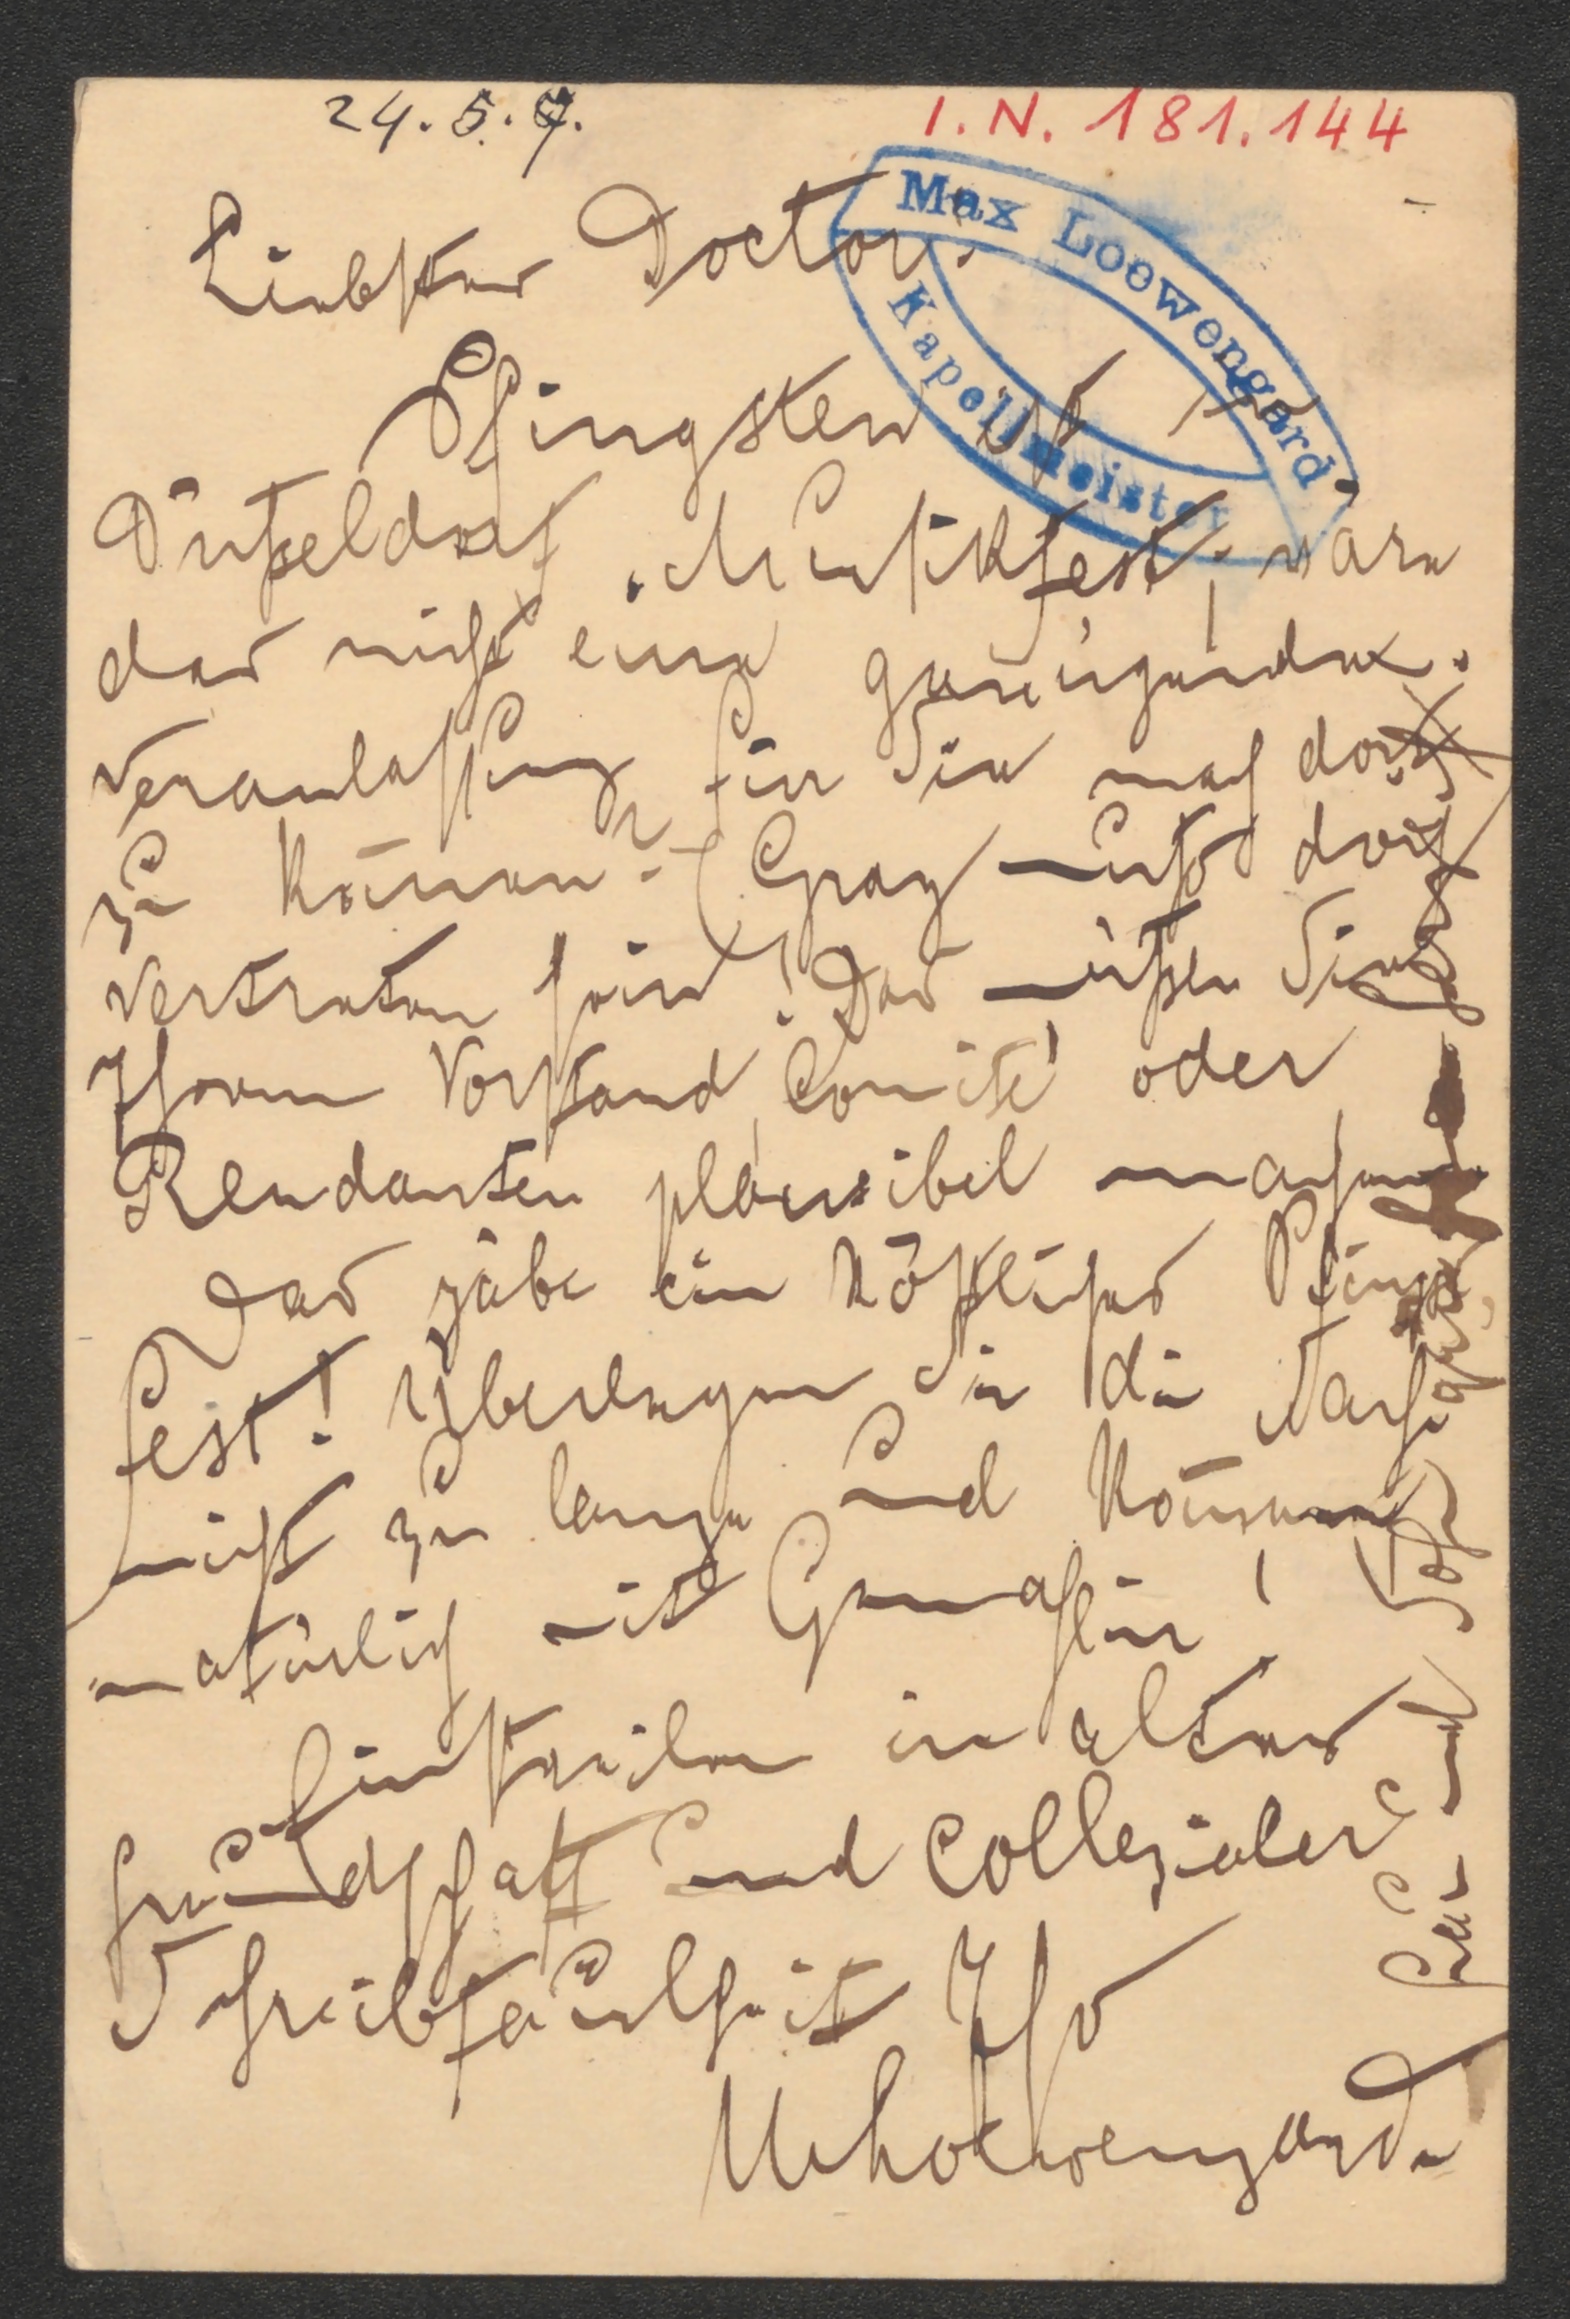 24. 5. 9.
I. N. 181.144
Max Loewengard.
Kapellmeister
Liebster Doctor.
Pfingsten ist in
Düßeldorf Musikfest; wäre
das nicht eine genügende
Veranlassung für Sie nach dort
zu können? – Graz muß dort
vertreten sein! Das müßen Sie
Ihrem Vorstand, Comité oder
Rendanten plausibel machen
Das gäbe ein köstliches Pfingst
fest! Überlegen Sie die Sache
nicht zu lange und kommen
natürlich mit Gemahlin!
Einstweilen in alter
Freundschaft und collegialer
Schreibfaulheit Ihr
MLoewengard.